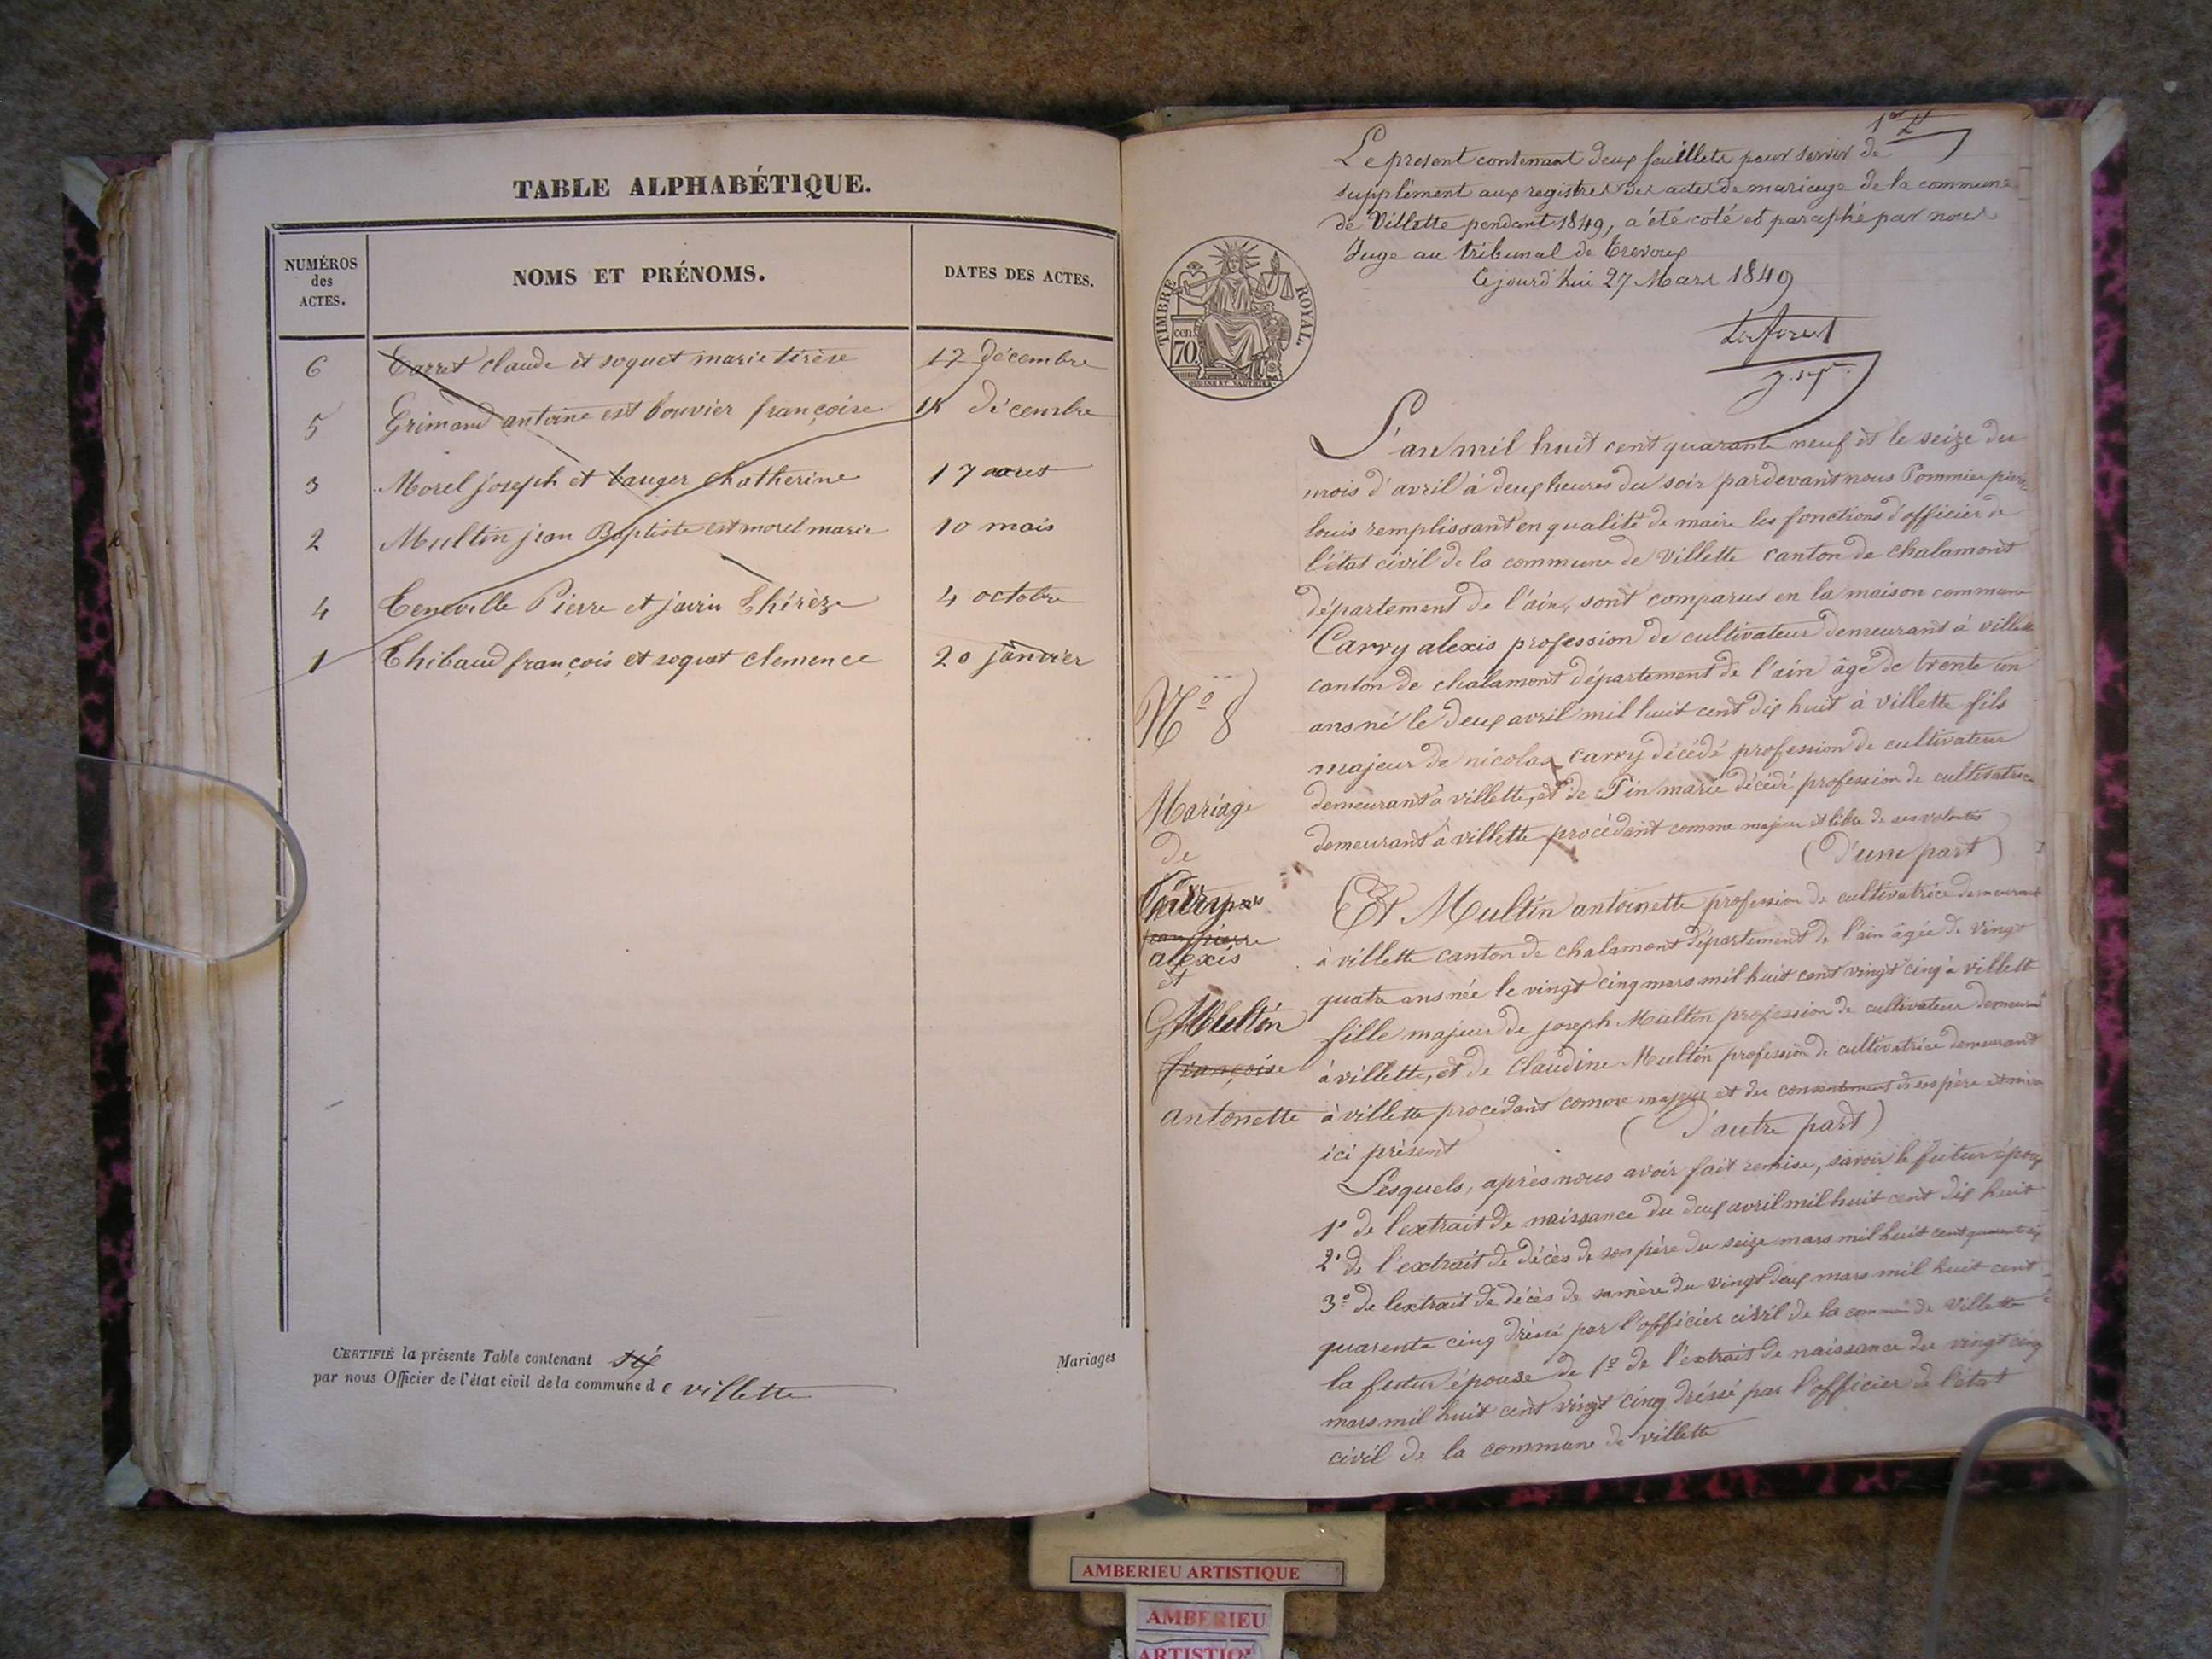 TABLE ALPHABÉTIQUE.
NUMÉROS des ACTES.
NOMS ET PRÉNOMS.
DATES DES ACTES.
6 Carret claude et soquet marie térèse 17 décembre
5 Grimand antoine est bouvier françoise décembre
3 Morel joseph et tauger chatherine 17
2 Multin jean Baptiste est morel marie 10 mais
4 Pierre et Thérèze 4 octobre
1 Thibaud françois et soquet clemence 20 janvier
CERTIFIÉ la présente Table contenant six
par nous Officier de l'état civil de la commune de villette
Mariages
Le present contenant deux feuillets pour servir de
supplément aux registres des actes de mariage de la commune
de Villette pendant 1849, a été coté et paraphé par nous
Juge au tribunal de Trevoux
Cejourd'hui 27 Mars 1849
TIMBRE ROYAL.
cen. 70
OUDINE ET VAUTHIER
L'an mil huit cent quarante neuf et le seize du
mois d'avril à deux heures du soir pardevant nous Pommier pierre
louis remplissant en qualité de maire les fonctions d'officier de
l'état civil de la commune de Villette canton de chalamont
département de l'ain, sont comparus en la maison commune
Carry alexis profession de cultivateur demeurant à villette
canton de chalamont département de l'ain âgé de trente un
ans né le deux avril mil huit cent dix huit à villette fils
majeur de nicolas carry décédé profession de cultivateur
demeurant à villette, et de Pin marie décédé profession de cultivatrice
demeurant à villette procédant comme majeur et libre de ses volontés
(D'une part)
N° 8
Mariage
de
Carry
jean pierre
alexis
et
Multin
françoise
antonette
Et Multin antoinette profession de cultivatrice demeurant
à villette canton de chalamont département de l'ain âgée de vingt
quatre ans née le vingt cinq mars mil huit cent vingt cinq à villette
fille majeur de joseph Multin profession de cultivateur demeurant
à villette, et de Claudine Multin profession de cultivatrice demeurant
à villette procédant comme majeur et du consentement de ses père et mère
ici présent (D'autre part)
Lesquels, après nous avoir fait remise, savoir le futur époux
1° de l'extrait de naissance du deux avril mil huit cent dix huit
2° de l'extrait de décès de son père du seize mars mil huit cent
3° de lextrait de décès de sa mère du vingt deux mars mil huit cent
quarente cinq dréssé par l'officier civil de la commune de Villette
la futur épouse de 1° de l'extrait de naissance du vingt cinq
mars mil huit cent vingt cinq dréssé par l'officier de l'état
civil de la commune de villette
AMBERIEU ARTISTIQUE
AMBERIEU
ARTISTIQUE